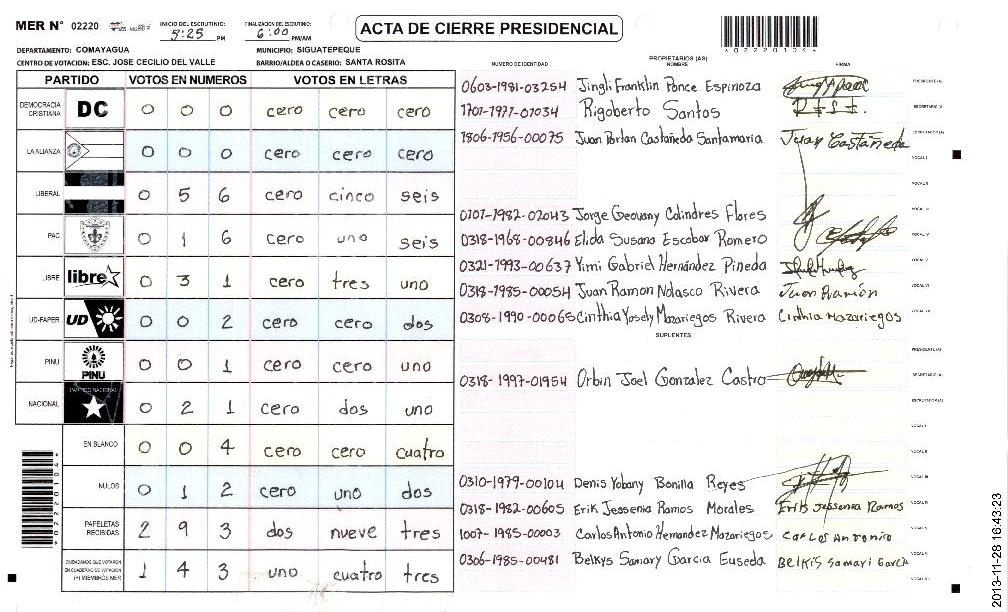 MER N° 02220
INICIO DEL ESCRUTINIO: 5:25 PM
FINALIZACION DEL ESCRUTINIO: 6:00 PM/AM
ACTA DE CIERRE PRESIDENCIAL
DEPARTAMENTO: COMAYAGUA
MUNICIPIO: SIGUATEPEQUE
CENTRO DE VOTACION: ESC. JOSE CECILIO DEL VALLE
BARRIO/ALDEA O CASERIO: SANTA ROSITA
PARTIDO VOTOS EN NUMEROS VOTOS EN LETRAS
DEMOCRACIA CRISTIANA DC 0 0 0 cero cero cero
LA ALIANZA 0 0 0 cero cero cero
LIBERAL 0 5 6 cero cinco seis
PAC 0 1 6 cero uno seis
LIBRE libre 0 3 1 cero tres uno
UD-FAPER UD 0 0 2 cero cero dos
PINU PINU 0 0 1 cero cero uno
NACIONAL PARTIDO NACIONAL 0 2 1 cero dos uno
EN BLANCO 0 0 4 cero cero cuatro
NULOS 0 1 2 cero uno dos
PAPELETAS RECIBIDAS 2 9 3 dos nueve tres
CIUDADANOS QUE VOTARON EN CUADERNO DE VOTACION (+) MIEMBROS MER 1 4 3 uno cuatro tres
NUMERO DE IDENTIDAD PROPIETARIOS (AS) NOMBRE FIRMA
0603-1981-03254 Jingli Franklin Ponce Espinoza PRESIDENTE(A)
1701-1977-01034 Rigoberto Santos SECRETARIO(A)
1806-1956-00075 Juan Portan Castañeda Santamaria Juan Castañeda ESCRUTADOR(A)
VOCAL I
VOCAL II
0107-1982-02043 Jorge Geovany Colindres Flores VOCAL III
0318-1968-00846 Elida Susana Escobar Romero VOCAL IV
0321-1993-00637 Yimi Gabriel Hernández Pineda VOCAL V
0318-1985-00054 Juan Ramon Nolasco Rivera Juan Ramón VOCAL VI
0308-1990-00065 Cinthia Yosely Mazariegos Rivera Cinthia Mazariegos VOCAL VII
SUPLENTES
PRESIDENTE(A)
0318-1997-01954 Orbin Joel Gonzalez Castro SECRETARIO(A)
ESCRUTADOR(A)
VOCAL I
VOCAL II
0310-1979-00104 Denis Yobany Bonilla Reyes VOCAL III
0318-1982-00605 Erik Jessenia Ramos Morales Erik Jessenia Ramos VOCAL IV
1007-1985-00003 Carlos Antonio Hernandez Mazariegos Carlos Antonio
0306-1985-00481 Belkys Samary Garcia Euseda BELKIS Samari Garcia
2013-11-28 16:43:23